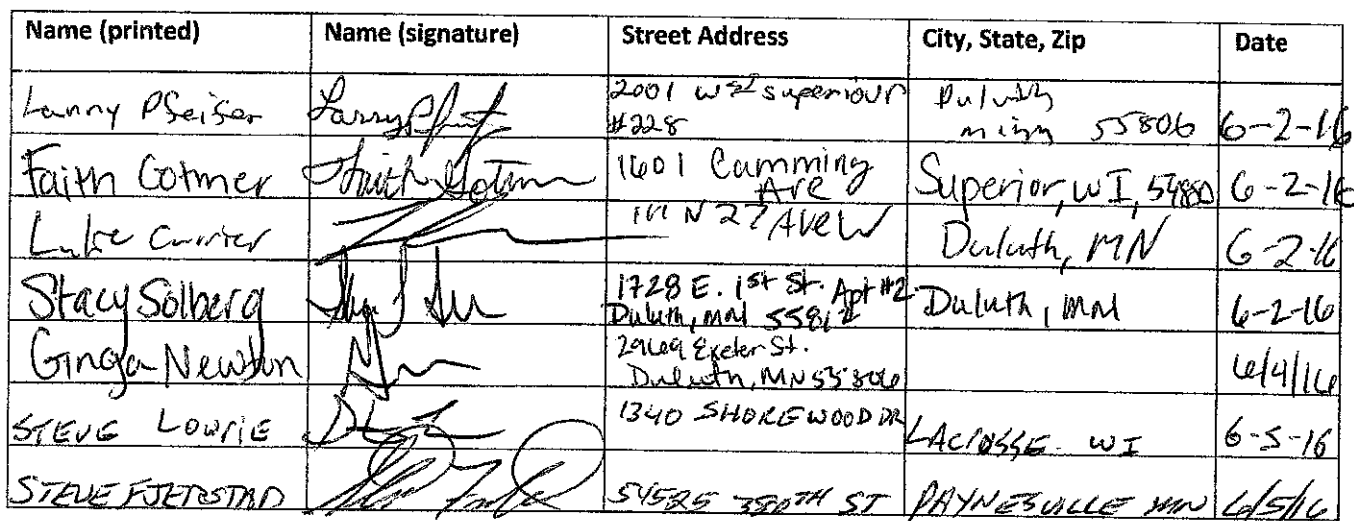 Name (printed) Name (signature) Street Address City, State, Zip Date
Lanny Pfeifer 2001 superiour Duluth
#228 minn 55806 6-2-16
Faith Cotmer 1601 Cumming
Ave Superior, WI, 54880 6-2-16
Luke Currier N 27 Ave W Duluth, MN 6-2-16
Stacy Solberg 1728 E. 1st St. Apt #2 Duluth, MN 6-2-16
Duluth, MN 55812
Newton Exeter St.
Duluth, MN 55806 6/4/16
STEVE LOWRIE 1340 SHOREWOOD DR LACROSSE. WI 6-5-16
STEVE FJERSTAD ST PAYNESVILLE MN 6/5/16